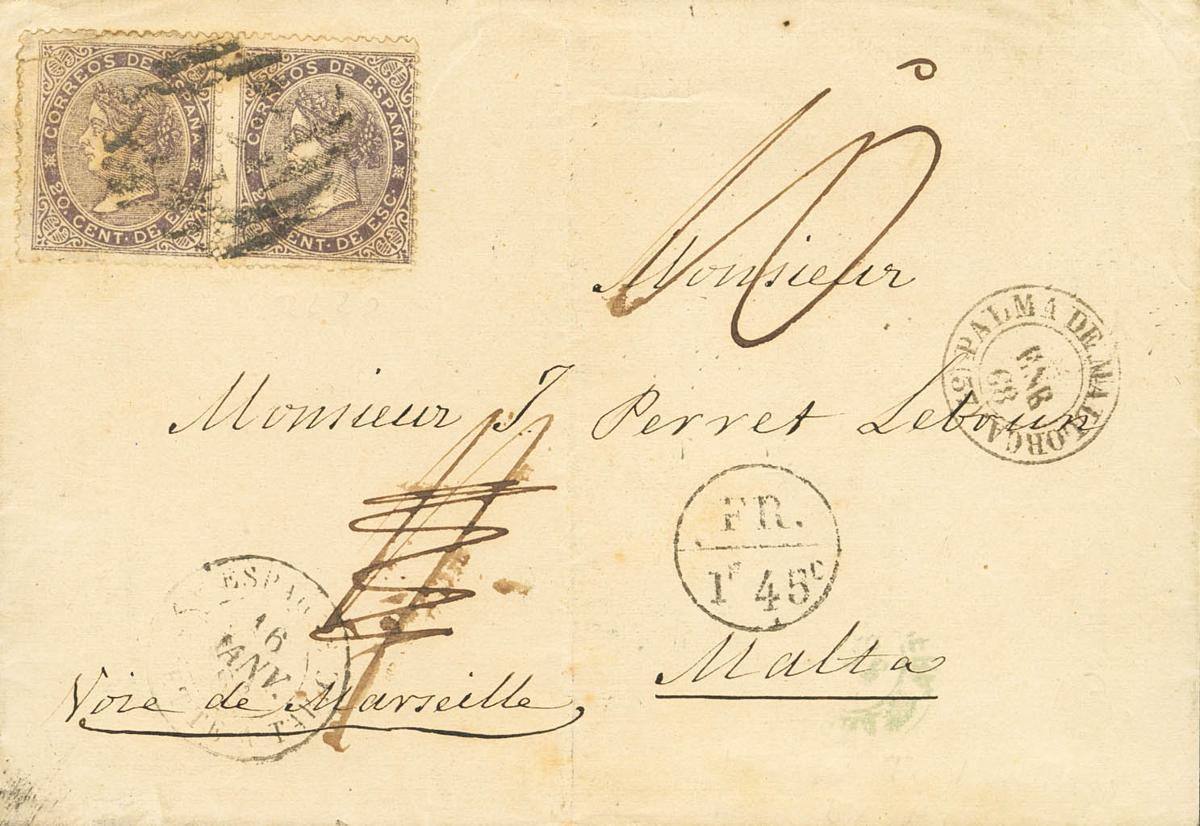 CORREOS DE ESPAÑA
20. CENT. DE E
CORREOS DE ESPAÑA
2 ENT. DE ESC.
10
Monsieur
Monsieur J Perret Leboun
PALMA DE MALLORCA
ENE
68
FR.
1F 45c
ESPAG
16
JANV.
Malta
Voie de Marseille